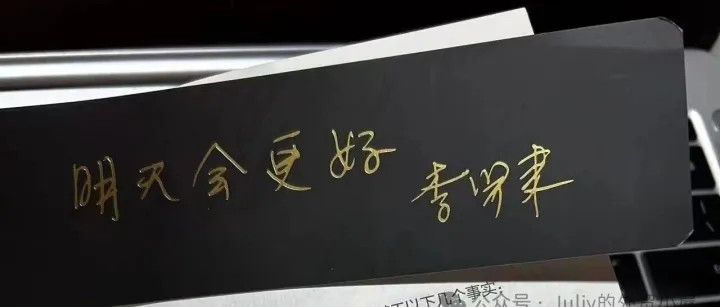 明天会更好
李
以下几个事实：
公众号：Juliy的